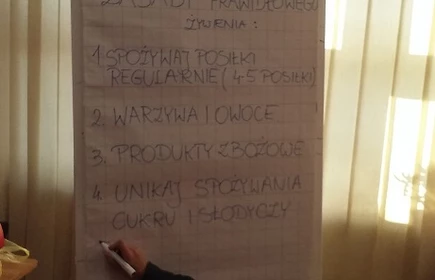 ZASADY PRAWIDŁOWEGO
ŻYWIENIA:
1. SPOŻYWAJ POSIŁKI
REGULARNIE (4-5 POSIŁKI)
2. WARZYWA I OWOCE
3. PRODUKTY ZBOŻOWE
4. UNIKAJ SPOŻYWANIA
CUKRU I SŁODYCZY